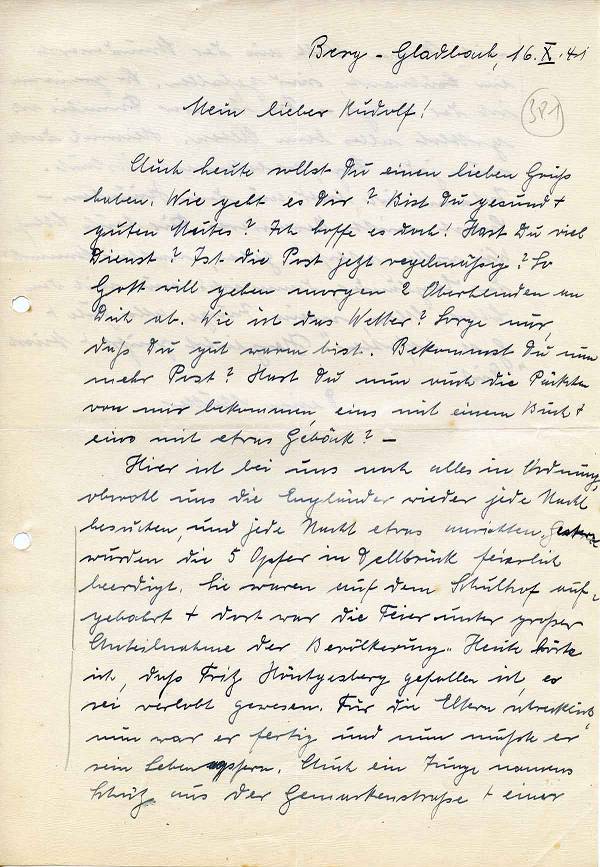 Berg-Gladbach, 16.X.41
381
Mein lieber Rudolf!
Auch heute sollst Du einen lieben Gruß
haben. Wie geht es Dir? Bist Du gesund +
guten Mutes? Ich hoffe es doch! Hast Du viel
Dienst? Ist die Post jetzt regelmässig? So
Gott will gehen morgen 2 Oberhemden an
Dich ab. Wie ist das Wetter? Sorge nur,
daß Du gut warm bist. Bekommst Du nun
mehr Post? Hast Du nun auch die Päckchen
von mir bekommen, eins mit einem Buch +
eins mit etwas Gebäck? –
Hier ist bei uns noch alles in Ordnung,
obwohl uns die Engländer wieder jede Nacht
besuchen, und jede Nacht etwas anrichten. Gestern
wurden die 5 Opfer in Dellbrück feierlich
beerdigt. Sie waren auf dem Schulhof auf-
gebahrt + dort war die Feier unter großer
Anteilnahme der Bevölkerung. Heute hörte
ich, daß Fritz Höntgesberg gefallen ist, er
sei verlobt gewesen. Für die Eltern schrecklich
nun war er fertig und nun mußte er
sein Leben opfern. Auch ein Junge namens
Schütz aus der Gemarkenstraße + einer